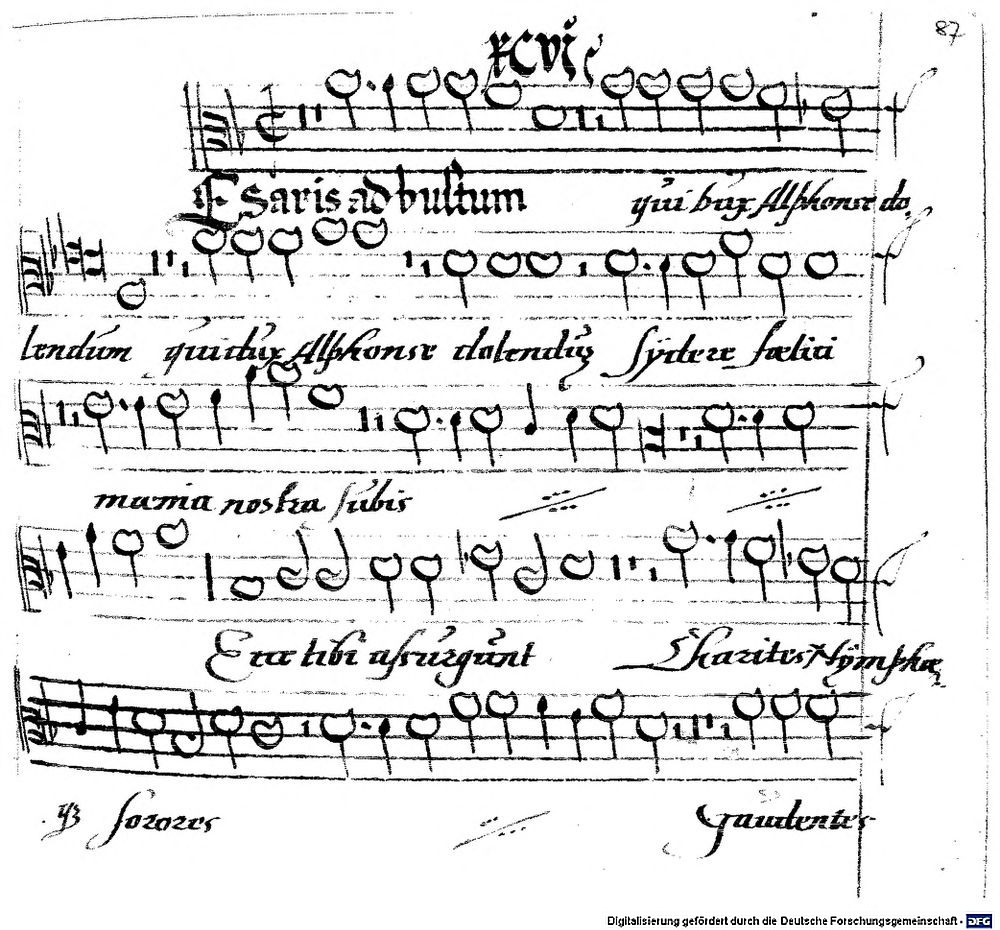 87
XCVI
Cesaris ad bustum quibuz Alphonse do,
lendum quibuz Alphonse dolenduz sydere fœlici
mænia nostra subis
Ecce tibi assurgunt Charites Nymphæ,
qz sorores Gaudentes
Digitalisierung gefördert durch die Deutsche Forschungsgemeinschaft - DFG